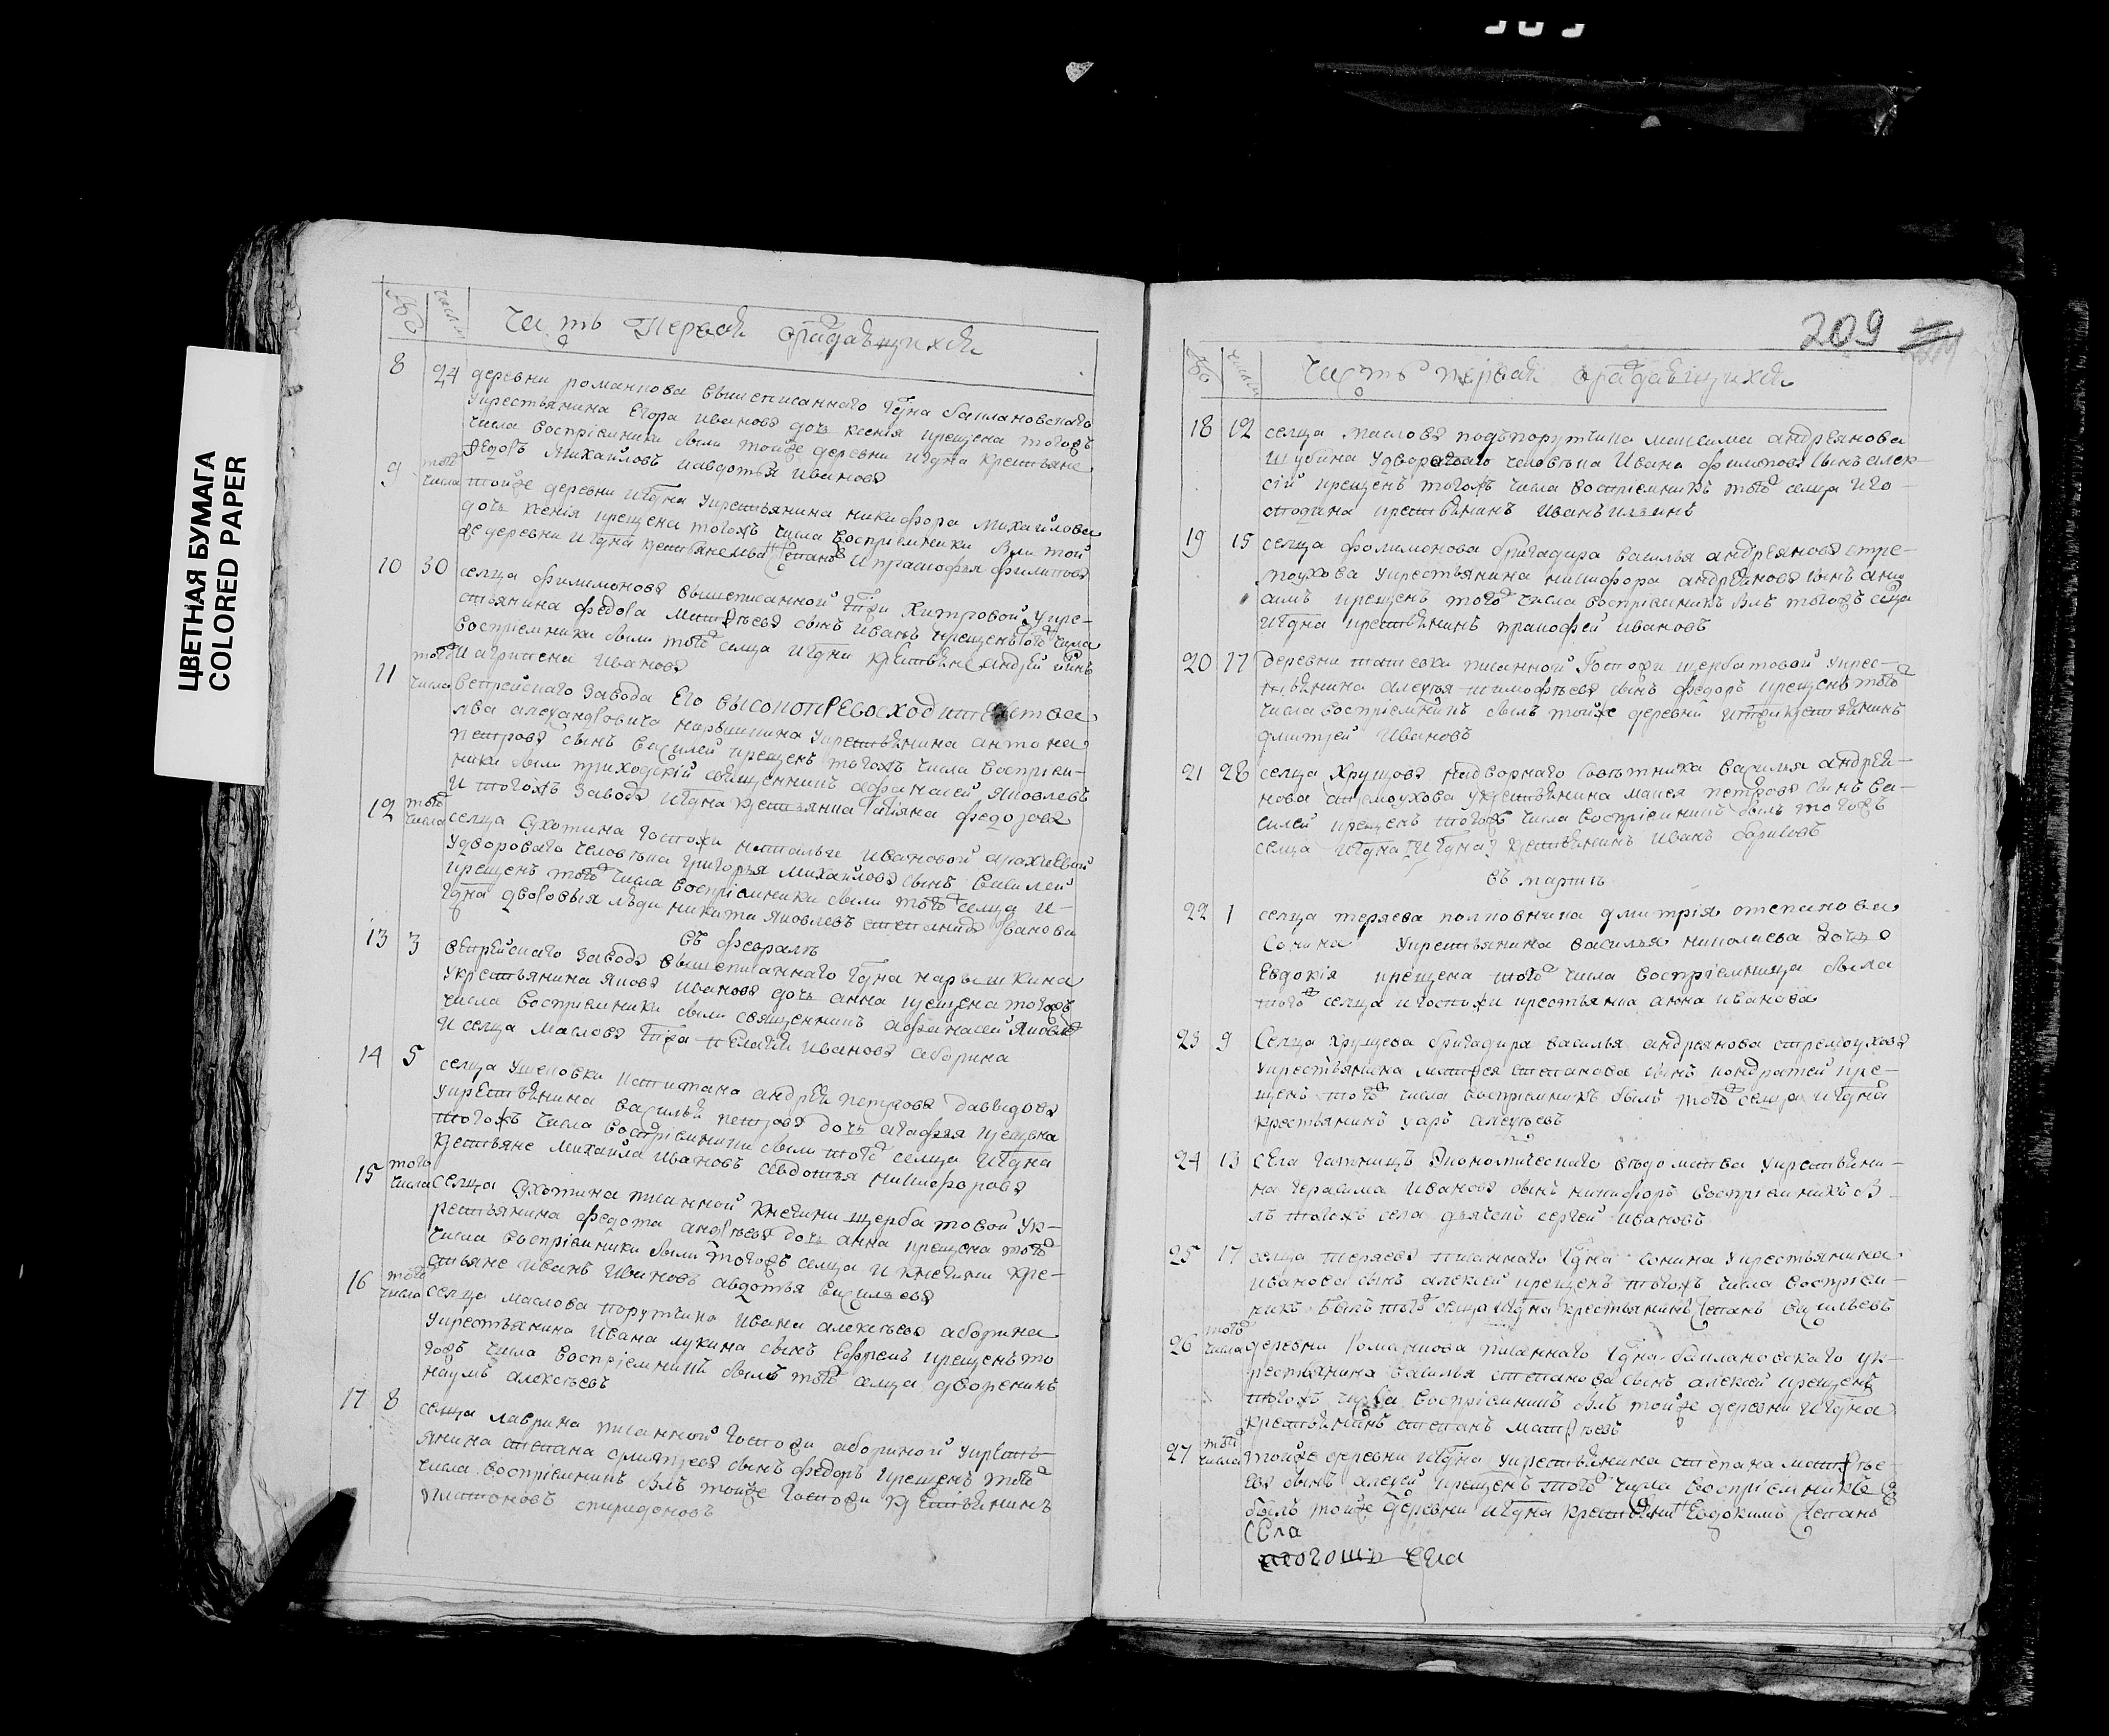 ЦВЕТНАЯ БУМАГА
COLORED PAPER
№ числа Часть Первая ораждающихся
8 24 деревни романкова вышеписаннаго гдна баплановскаго
укрестьянина Егора иванова дочь ксенія крещена тогожъ
числа воспріемники были тойже деревни игдна крестьяне
Федоръ Михайловъ иавдотья иванова
9 того числа тойже деревни игдна укрестьянина никифора михайлова
дочь ксенія крещена тогожъ числа воспріемники были той
же деревни игдна крестьяне Степанъ ипраскофья филипова
10 30 селца филимонова вышеписанной гжи хитровой укре-
стьянина федора Матфеева сынъ иванъ крещенъ того числа
воспріемники были того селца игдни крестьяне андрей
иагрипена иванова
11 того числа вепрейскаго завода Его высокопревосходителства
лва александровича нарышкина укрестьянина антона
петрова сынъ василей крещенъ тогожъ числа воспріем-
ники были приходскій священникъ афанасей яковлевъ
и тогожъ завода игдна крестьянка татьяна федорова
12 того числа селца Сухотина госпожи натальи ивановой
удвороваго человека григорья михайлова сынъ василей
крещенъ того числа воспріемники были того селца и-
гдна дворовыя люди никита яковлевъ иванова
въ февралѣ
13 3 вепрейскаго завода вышеписаннаго гдна нарышкина
укрестьянина якова иванова дочь анна крещена тогожъ
числа воспріемники были священникъ афанасей яковлевъ
и селца маслова гжа пелагея иванова аборина
14 5 селца ушаковки капитана андрея петрова давыдова
укрестьянина василья петрова дочь агафья крещена
тогожъ числа воспріемники были того селца игдна
крестьяне михайла ивановъ авдотья никифорова
15 того числа селца Сухотина писанной княгини щербатовой ук-
рестьянина федота андреева дочь анна крещена того
числа воспріемники были тогожъ селца и княгини кре-
стьяне иванъ ивановъ авдотья васильева
16 того числа селца маслова порутчика ивана алексеева аборина
укрестьянина ивана лукина сынъ ефремъ крещенъ то
гожъ числа воспріемникъ былъ того селца дворенинъ
наумъ алексеевъ
17 8 селца лаврина писанной госпожи абориной укресть-
янина степана дмитреева сынъ федоръ крещенъ того
числа воспріемникъ былъ тойже госпожи крестьянинъ
платоновъ спиридоновъ
209
№ числа Часть первая ораждающихся
18 12 селца маслова подъпорутчика максима андреянова
шубина удвороваго человека ивана филипова сынъ алек-
сій крещенъ тогожъ числа воспріемникъ того селца иго-
сподина крестьянинъ иванъ ильинъ
19 15 селца филимонова бригадира василья андреянова стре-
моухова укрестьянина никифора андреянова сынъ
крещенъ того числа воспріемникъ былъ тогожъ селца
игдна крестьянинъ пракофей ивановъ
20 17 деревни писанной госпожи щербатовой укрес-
тьянина алексея тимофеева сынъ федоръ крещенъ того
числа воспріемникъ былъ тойже деревни крестьянинъ
дмитрей ивановъ
21 28 селца хрущова надворнаго советника василья андрея-
нова стремоухова укрестьянина петрова сынъ ва-
силей крещенъ тогожъ числа воспріемникъ былъ тогожъ
селца игдна крестьянинъ иванъ борисовъ
въ мартѣ
22 1 селца теряева полковника дмитрія степанова
Сонина укрестьянина василья николаева дочь
Евдокія крещена того числа воспріемница была
того селца игоспожи крестьянка анна иванова
23 9 Селца хрущева бригадира василья андреянова стремоухова
укрестьянина матфея степанова сынъ кондратей кре-
щенъ того числа воспріемникъ былъ того селца игдна
крестьянинъ алексеевъ
24 13 села гатницъ экономическаго ведомства укрестьяни-
на герасима иванова сынъ никифоръ воспріемникъ бы-
лъ тогожъ села дьячекъ сергей ивановъ
25 17 селца теряева писаннаго гдна сонина укрестьянина
иванова сынъ алексей крещенъ тогожъ числа воспріем-
никъ былъ того селца игдна крестьянинъ степанъ васильевъ
26 того числа деревни Романкова писаннаго гдна баплановскаго ук-
рестьянина василья степанова сынъ алексей крещенъ
тогожъ числа воспріемникъ былъ тойже деревни игдна
крестьянинъ степанъ матфеевъ
27 того числа тойже деревни игдна укрестьянина степана матфее-
ва сынъ алексей крещенъ того числа воспріемникъ
былъ тойже деревни игдна крестьянинъ Евдокимъ степанъ
Села